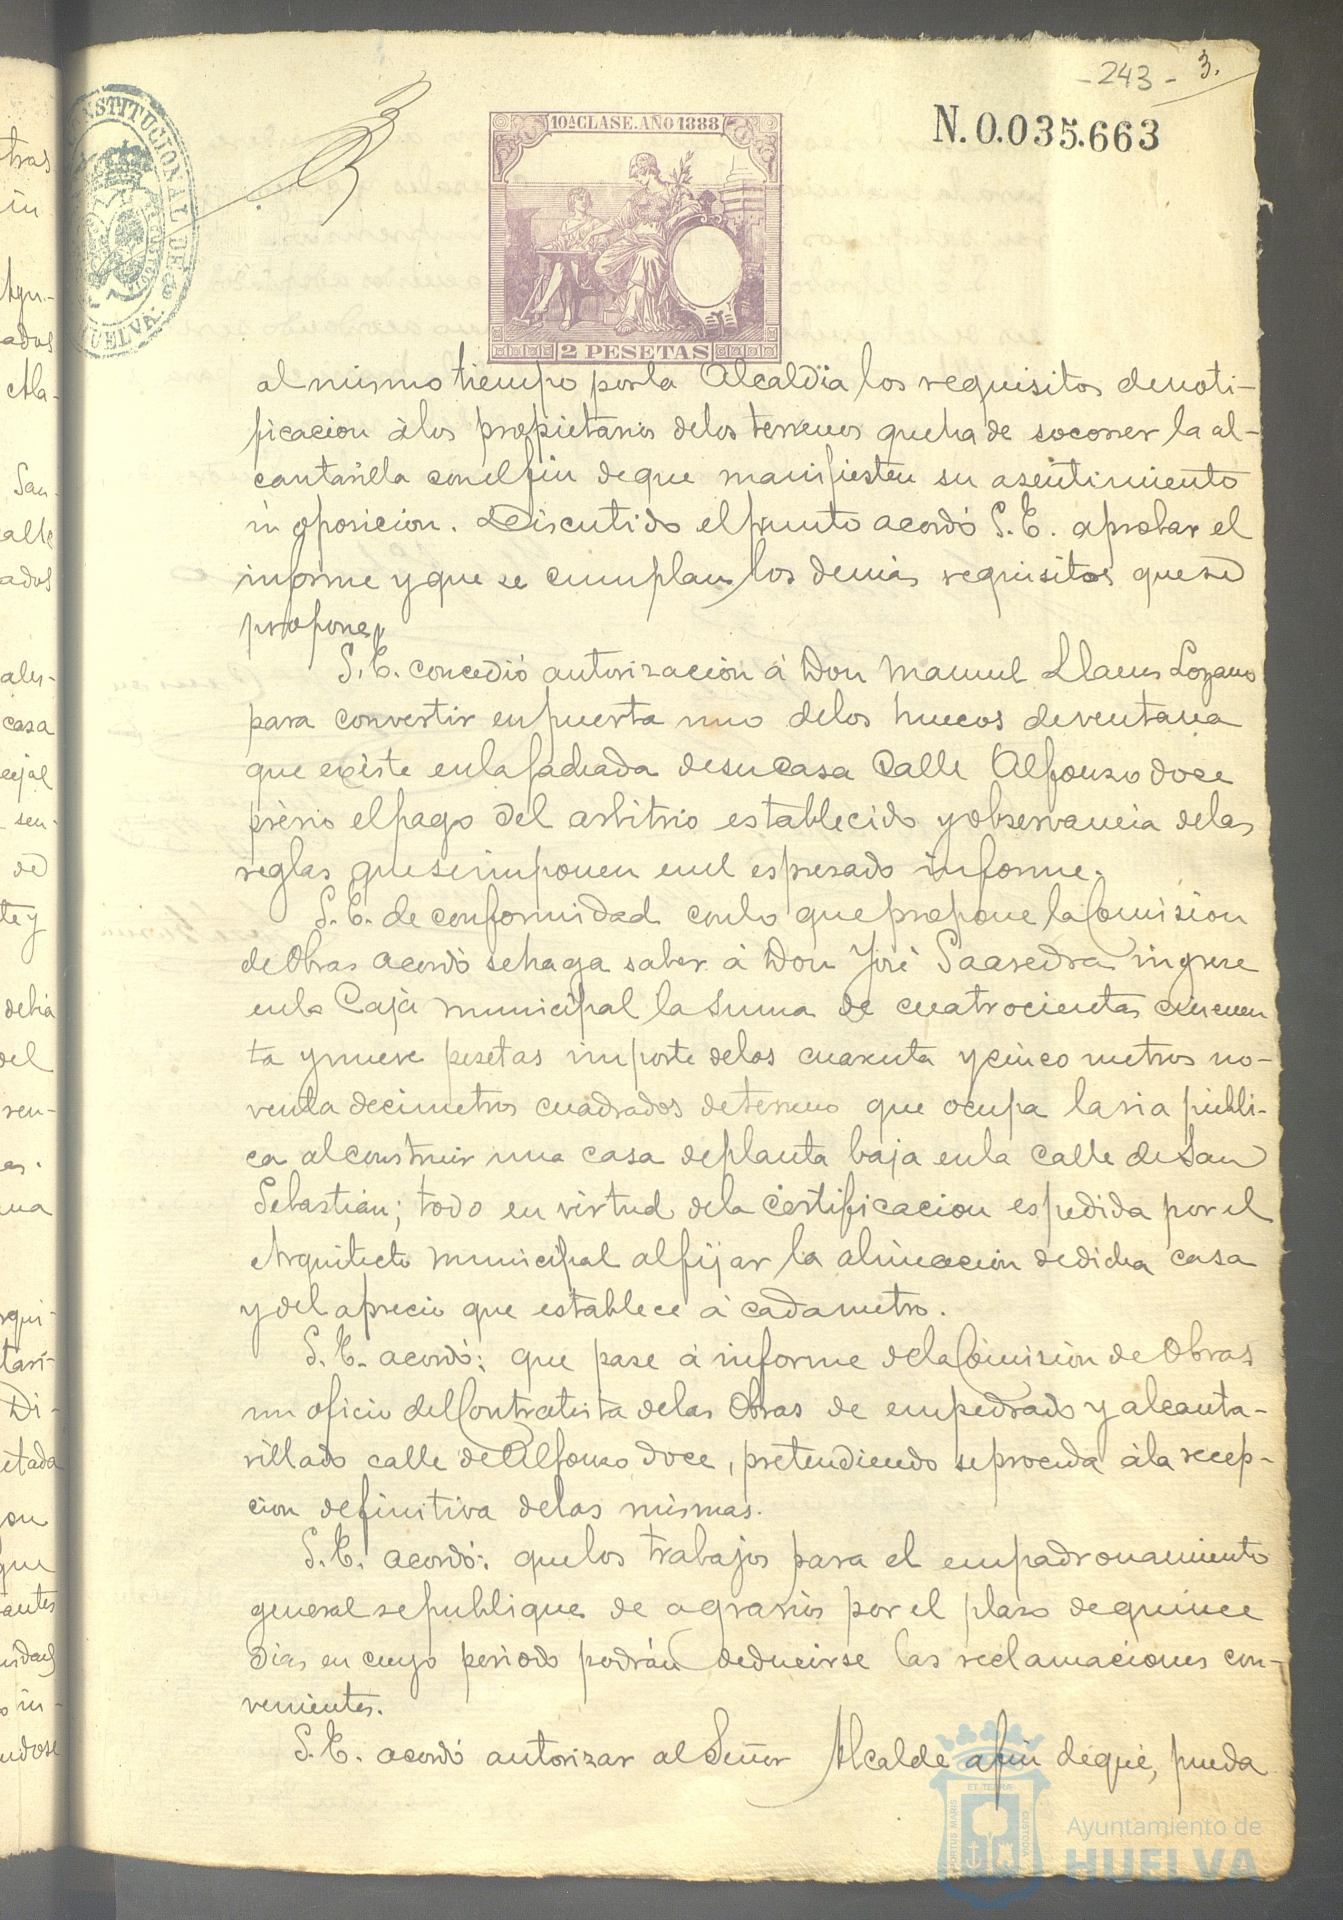 -243-
3.
N.0.035.663
CONSTITUCIONAL DE
HUELVA.
10ª CLASE. AÑO 1888
2 PESETAS
al mismo tiempo por la Alcaldia los requisitos de noti-
ficacion á los propietarios de los terrenos que ha de socorrer la al-
cantarilla con el fin de que manifiesten su asentimiento
ú oposicion. Discutido el punto acordó S.E. aprobar el
informe y que se cumplan los demás requisitos que se
propone.
S.E. concedió autorizacion á Don Manuel Llanes Lozano
para convertir en puerta uno de los huecos de ventana
que existe en la fachada de su casa Calle Alfonso doce
prévio el pago del arbitrio establecido y observancia de las
reglas que se imponen en el espresado informe.
S.E. de conformidad con lo que propone la Comision
de Obras acordó se haga saber á Don José Saavedra ingrese
en la Caja municipal la suma de cuatrocientas cincuen
ta y nueve pesetas importe de los cuarenta y cinco metros no-
venta decimetros cuadrados de terreno que ocupa la via públi-
ca al construir una casa de planta baja en la calle de San
Sebastián; todo en virtud de la certificacion espedida por el
Arquitecto municipal al fijar la alineacion de dicha casa
y del aprecio que establece á cada metro.
S.E. acordó: que pase á informe de la Comisión de Obras
un oficio del Contratista de las Obras de empedrado y alcanta-
rillado calle de Alfonso doce, pretendiendo se proceda á la recep-
cion definitiva de las mismas.
S.E. acordó: que los trabajos para el empadronamiento
general se publique de agravios por el plazo de quince
dias en cuyo periodo podrán deducirse las reclamaciones con-
venientes.
S.E. acordó autorizar al Señor Alcalde a fin de que, pueda
PORTUS MARIS ET TERRÆ CUSTODIA
Ayuntamiento de
HUELVA